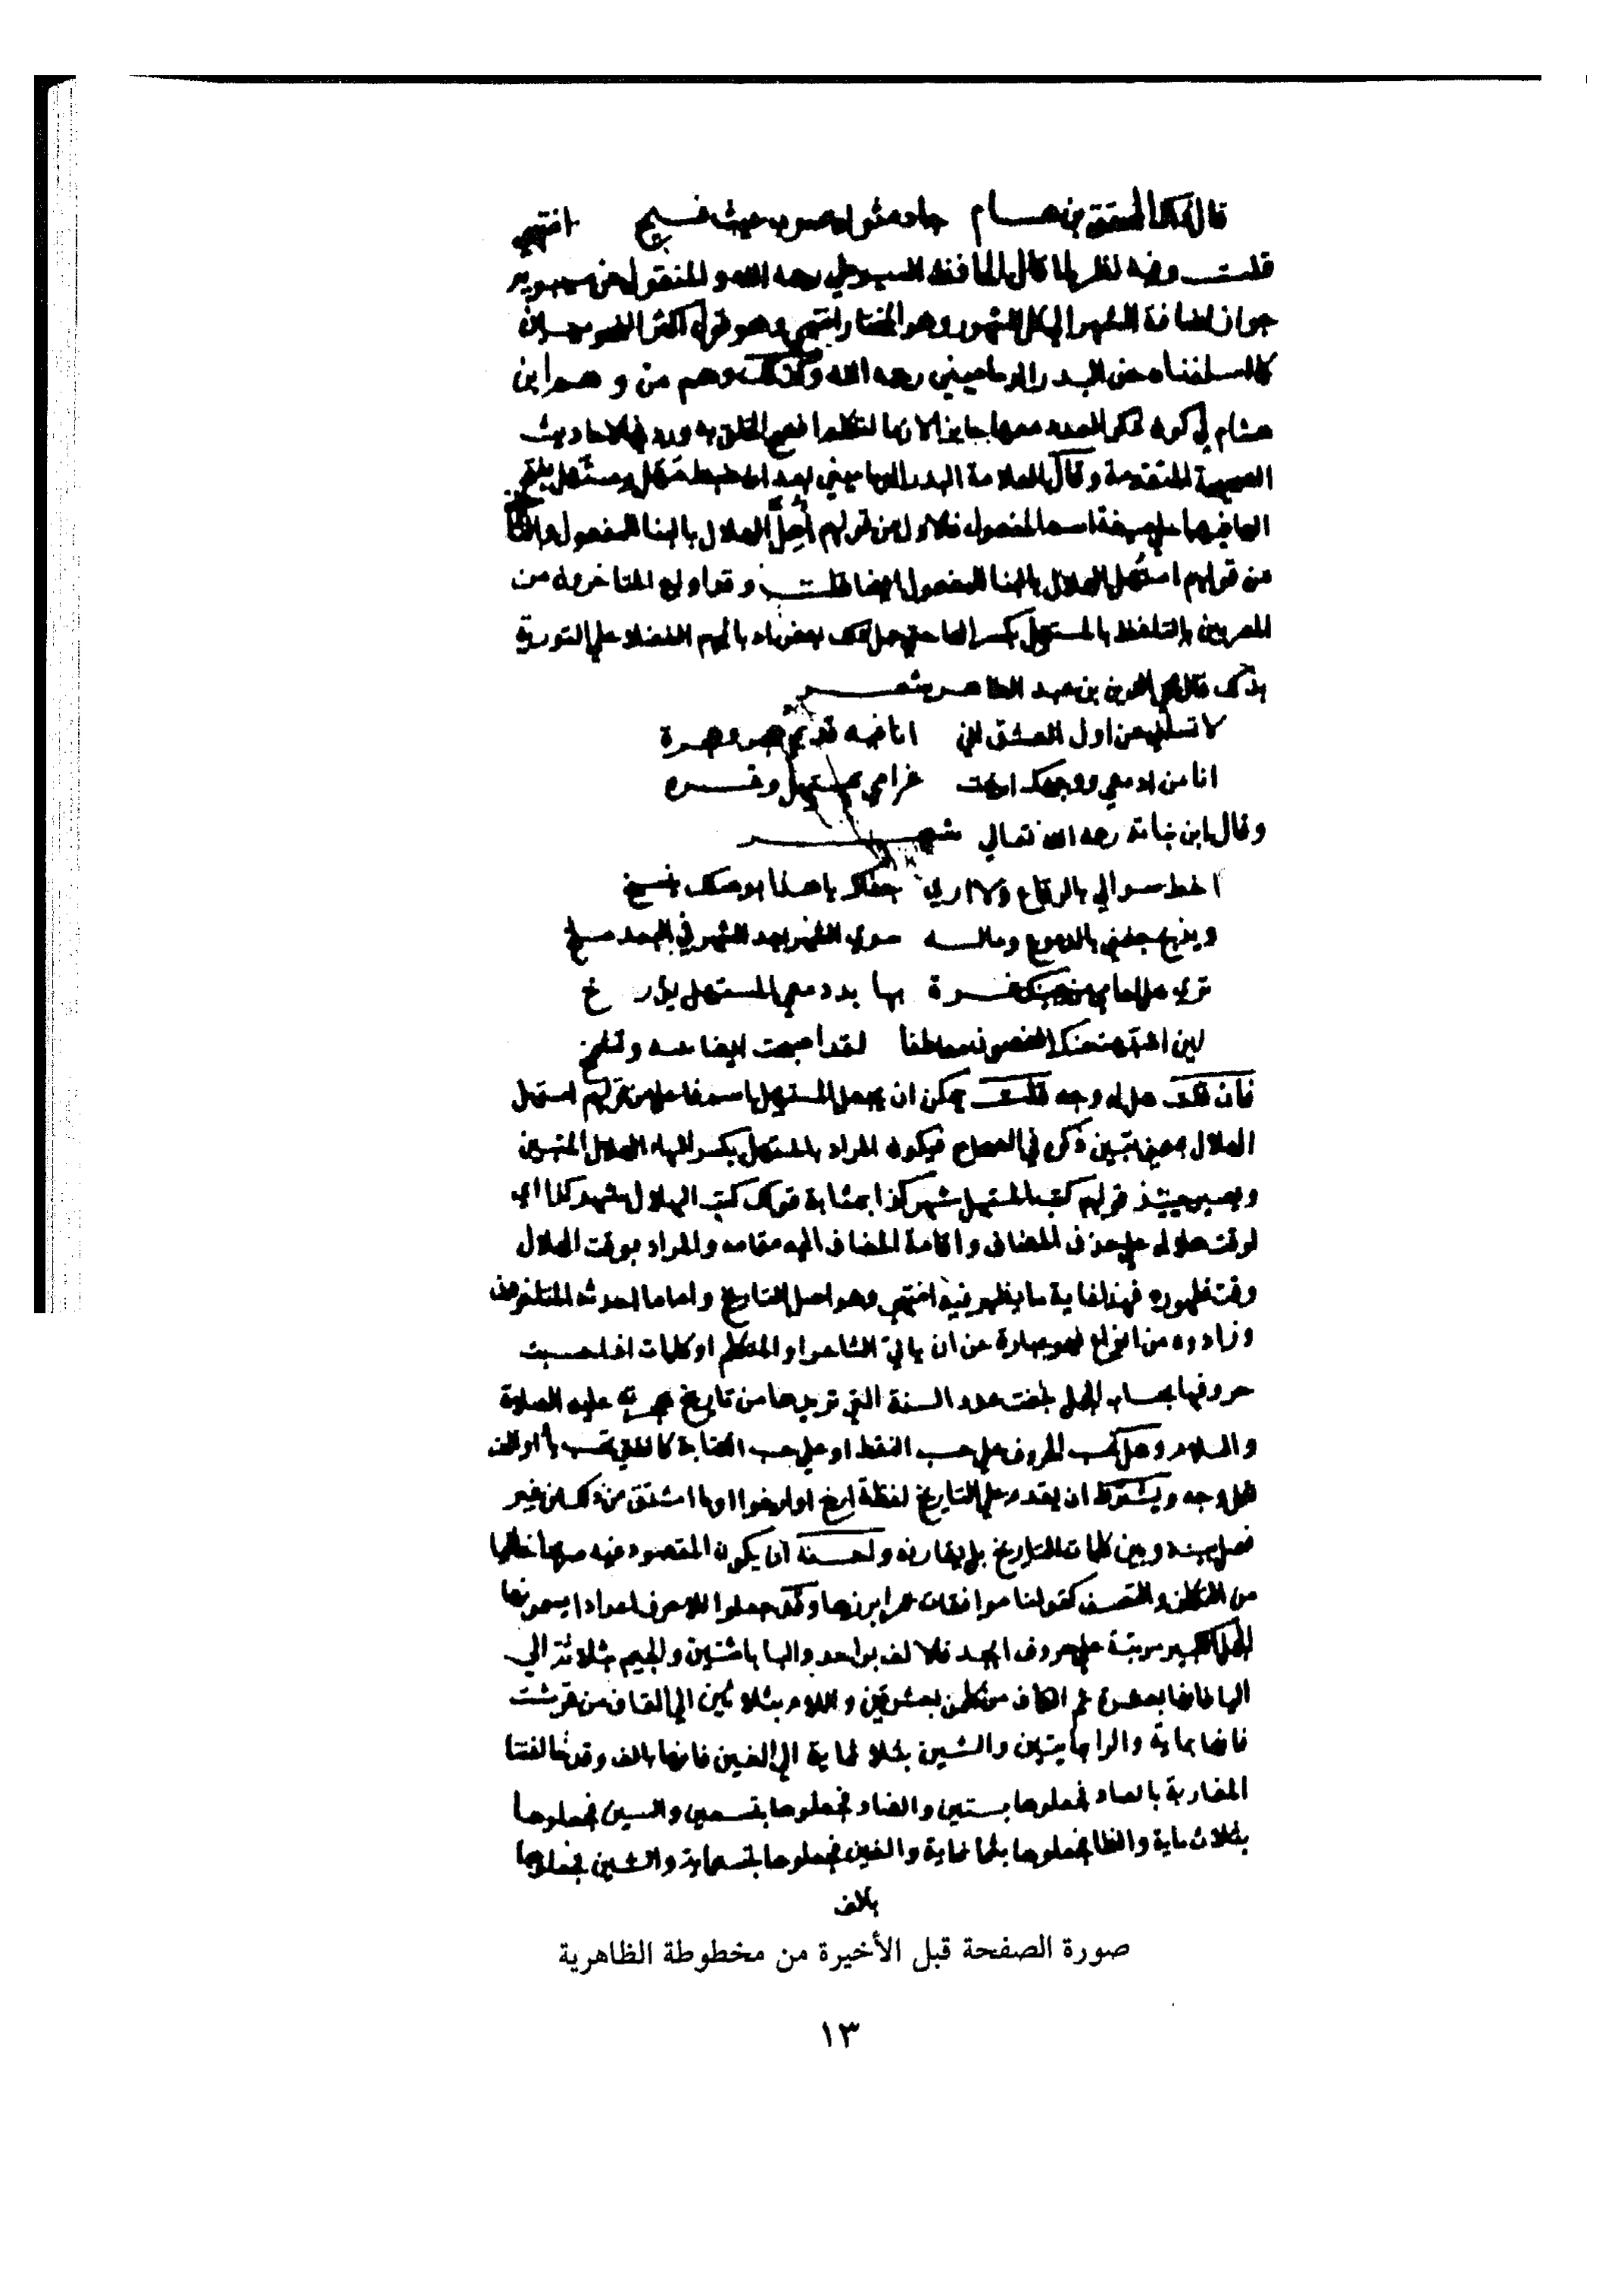 قال المحقق بن هشام انتهى
قلت وفيه نظر لما قال الحافظ السيوطي رحمه الله والمنقول عن سيبويه
جواز اضافة الشهر الى كل الشهور وهو المختار انتهى وهو قول اكثر النحويين
كما اسلفناه عن البدر الدماميني رحمه الله وكذلك وهم من وهم ابن
هشام في كون ذكر العدد معها جايز الا
الصحيحة المتقدمة وقال العلامة البدر الدماميني بعد ان ضبط مهل ومستهل بفتح
الها فيهما على صيغة اسم المفعول فالاول من قولهم اُهِلَّ الهلال بالبنا للمفعول والثاني
من قولهم استُهل الهلال بالبنا للمفعول ايضا قلت وقد اولع المتاخرون من
المصريين بالتلفظ بالمستهل بكسر الها حتى حمل ذلك بعض الفضلا على التورية
بذلك قال محي الدين بن عبد الظاهر شعر
لا تسلني عن اول العشق اني انا فيه قديم هجر وهجرة
انا من ادمعي ووجهك ارخت غرامي بمستهل وغره
وقال ابن نباتة رحمه الله تعالى شعر
اخط سوالي بالرقاع ولا ارى
ويذبح جفني بالدموع وماله سوى الشهر بعد الشهر في البعد سلخ
غرة بها بد دمعي المستهل يؤرخ
لين اشبهت منك الغصون معاطفا لقد اصبحت ايضا
فان قلت هل له وجه قلت يمكن ان يجعل المستهل اسم فاعل من قولهم استهل
الهلال بمعنى تبين ذكره في الصحاح فيكون المراد بالمستهل بكسر الهاء الهلال المتبين
ويصير حينئذ قولهم كتب المستهل شهر كذا بمثابة قولك كتب الهلال شهر كذا اي
لوقت هلاله على حذف المضاف واقامة المضاف اليه مقامه والمراد بوقت الهلال
وقت ظهوره فهذا غاية ما يظهر فيه انتهى وهو اصل التاريخ واما ما احدثه المتاخرون
وزادوه من انواع فهو عبارة عن ان ياتي الشاعر او المتكلم او كلمات اذا حسبت
حروفها بحساب الجمل بلغت عدد السنة التي تريدها من تاريخ هجرته عليه الصلاة
والسلام وهل تحسب الحروف على حسب النطق او على حسب الكتابة
لكل وجه ويشترط ان يقدم على التاريخ لفظة ارخ او ارخوا او ما اشتق من ذلك من غير
فصل بينه وبين كلمات التاريخ بل يقارنه واحسنه ان يكون المقصود فيه سهلا خاليا
من التكلف والتعسف كقولنا موافقات وقد جعلوا للاحرف اعدادا يسمونها
الجمل الكبير مرتبة على حروف ابجد فالالف بواحد والبا باثنين والجيم بثلاثة الى
اليا فانها بعشرة ثم الكاف من كلمن بعشرين واللام بثلاثين الى القاف من قرشت
فانها بماية والرا بمايتين والشين بثلاثماية الى الغين فانها بالف وقد خالفتنا
المغاربة بالصاد فجعلوها بستين والضاد فجعلوها بتسعين والسين فجعلوها
بثلاث ماية والظا فجعلوها بثمانماية والغين فجعلوها بتسعماية والشين فجعلوها
بالف
صورة الصفحة قبل الأخيرة من مخطوطة الظاهرية
١٣